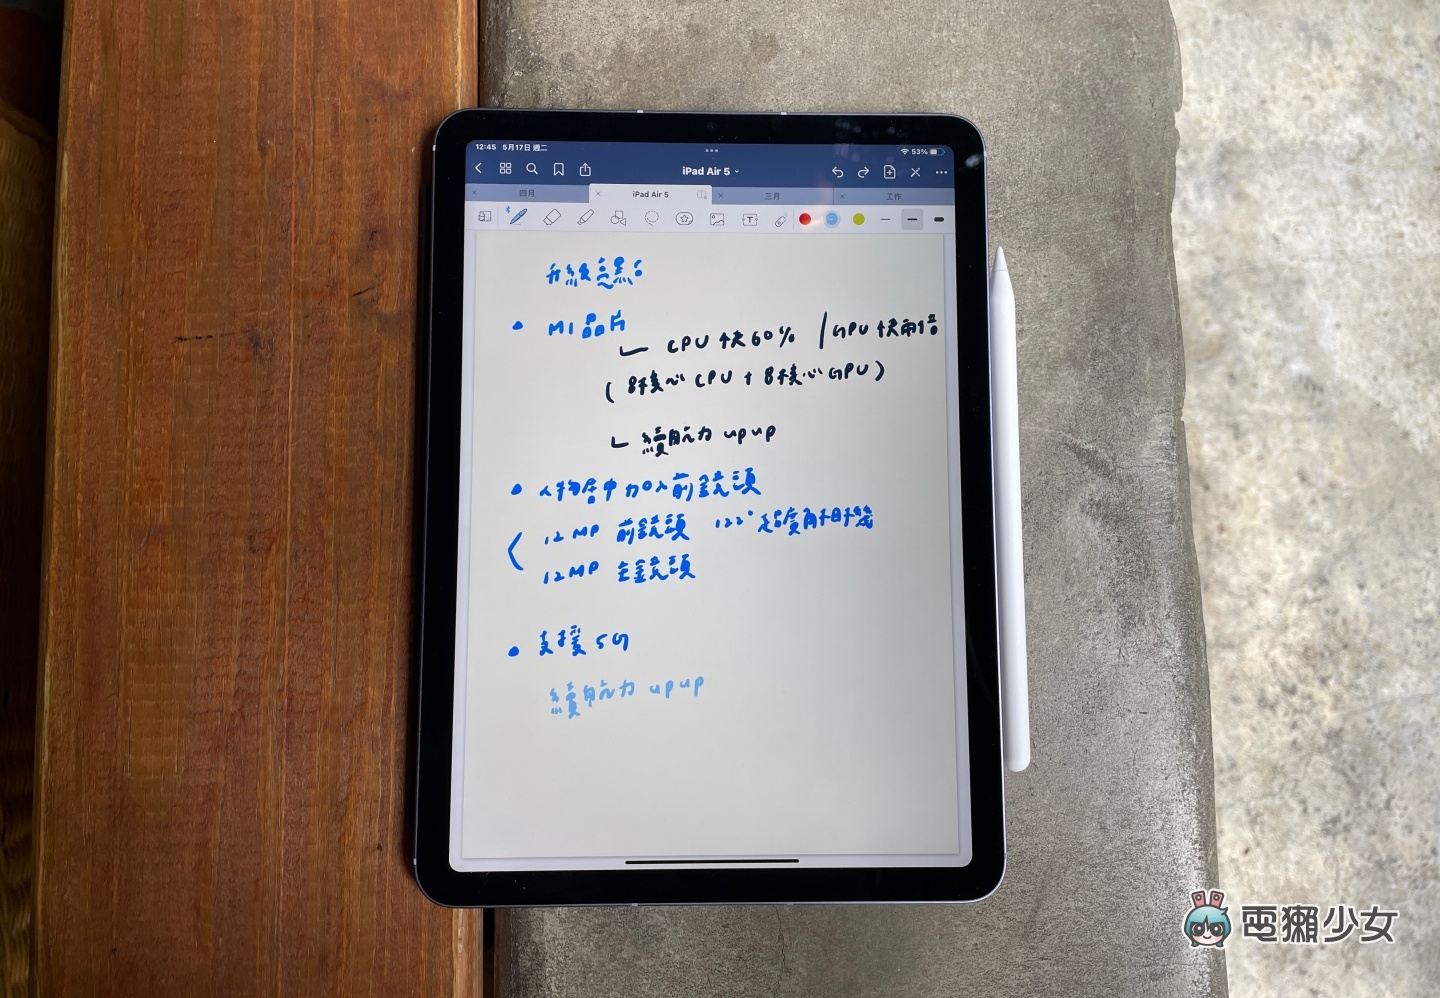 12:45 5月17日 週二
53%
iPad Air 5
四月
iPad Air 5
三月
工作
T
升級亮點:
• M1晶片
CPU 快60% / GPU 快兩倍
( 8核心 CPU + 8核心 GPU )
續航力 upup
• 人物居中 加入前鏡頭
12MP 前鏡頭 122° 超廣角相機
12MP 主鏡頭
• 支援 5G
續航力 upup
電獺少女